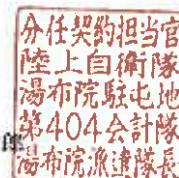 分任契約担当官
陸上自衛隊
湯布院駐屯地
第404会計隊
湯布院派遣隊長